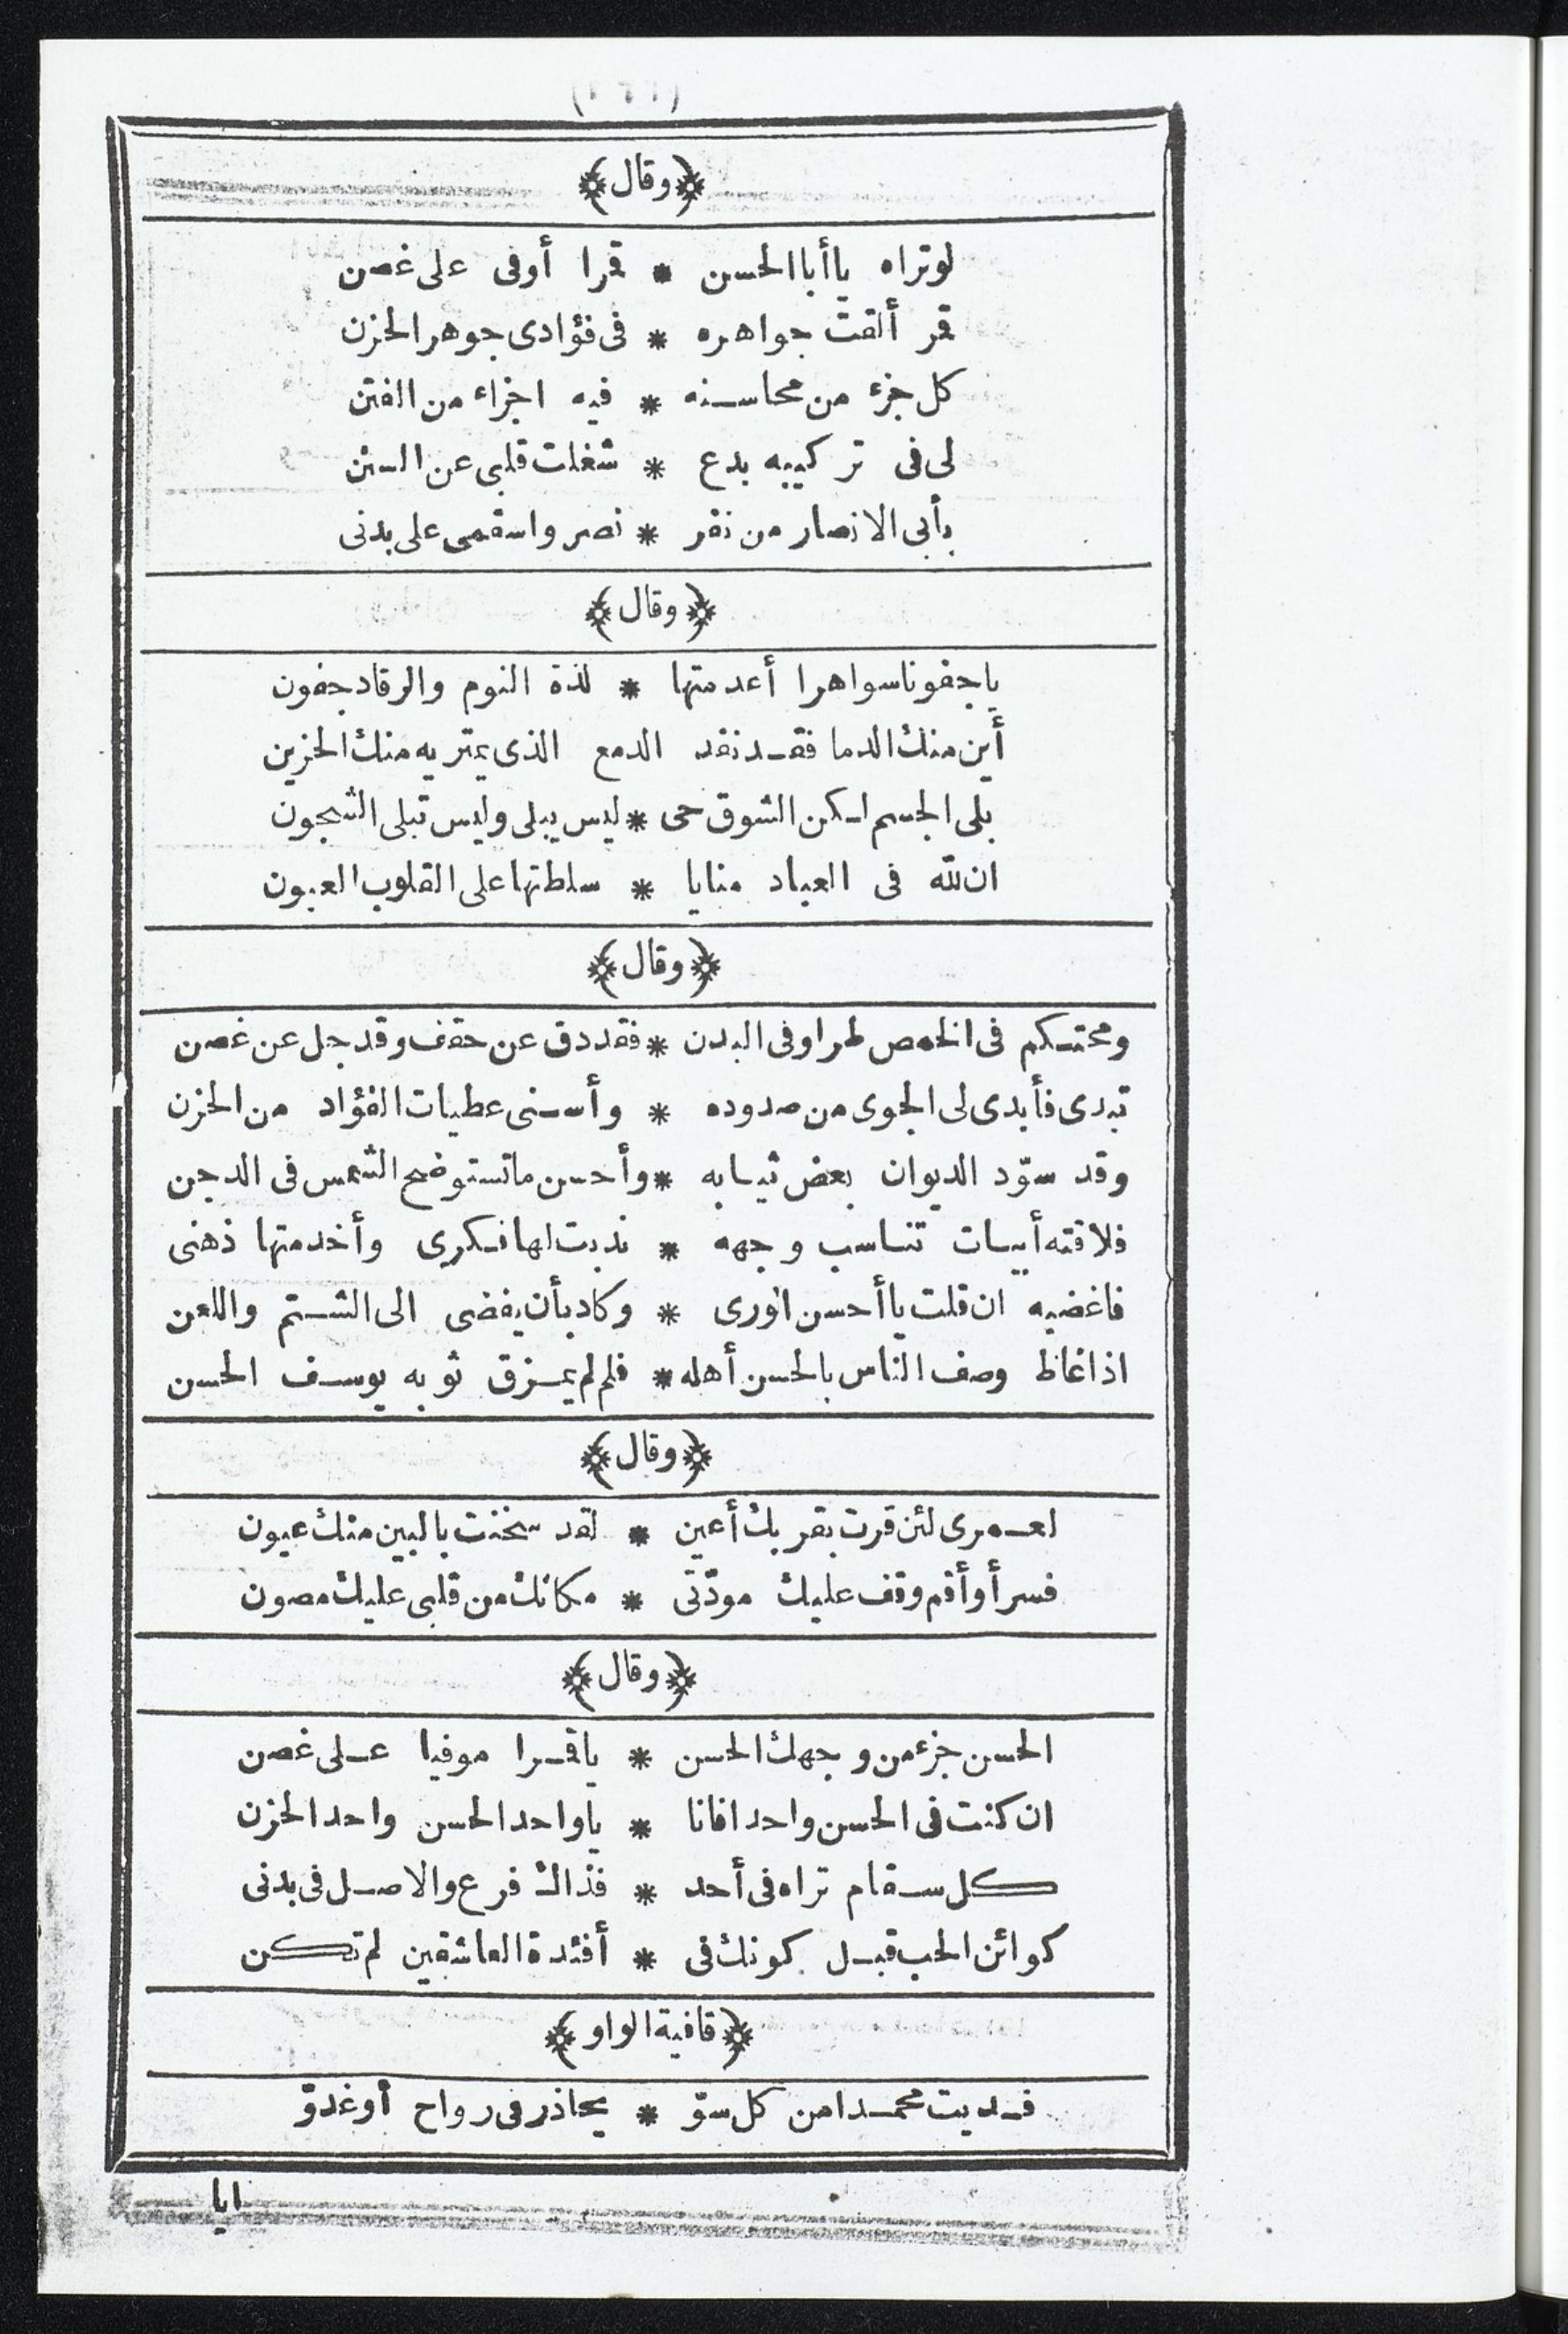 ﴿وقال﴾
لوتراه ياأباالحسن * قمرا أوفى على غصن
قمر ألقت جواهره * فى فؤادى جوهر الحزن
كل جزء من محاسنه * فيه اجزاء من الفتن
لى فى تركيبه بدع * شغلت قلبى عن السنن
بأبى الانصار من نفر * نصر واسقمى على بدنى
﴿وقال﴾
ياجفوناسواهرا أعدمتها * لذة النوم والرقادجفون
أين منك الدما فقد نفد الدمع الذى يمتريه منك الحزين
بلى الجسم لكن الشوق حى * ليس يبلى وليس تبلى الشجون
ان لله فى العباد منايا * سلطتها على القلوب العيون
﴿وقال﴾
ومحتكم فى الخمص طرا وفى البدن * فقد دق عن حقف وقد جل عن غصن
تبدى فأبدى لى الجوى من صدوده * وأسنى عطيات الفؤاد من الحزن
وقد سوّد الديوان بعض ثيابه * وأحسن ماتستوضح الشمس فى الدجن
فلاقته أبيات تناسب وجهه * ندبت لها فكرى وأخدمتها ذهنى
فاغضبه ان قلت ياأحسن الورى * وكاد بأن يفضى الى الشتم واللعن
اذا غاظ وصف الناس بالحسن أهله * فلم لم يمزق ثوبه يوسف الحسن
﴿وقال﴾
لعمرى لئن قرت بقربك أعين * لقد سخنت بالبين منك عيون
فسر أوأقم وقف عليك مودّتى * مكانك من قلبى عليك مصون
﴿وقال﴾
الحسن جزء من وجهك الحسن * ياقمرا موفيا على غصن
ان كنت فى الحسن واحدا فانا * ياواحد الحسن واحد الحزن
كل سقام تراه فى أحد * فذاك فرع والاصل فى بدنى
كوائن الحب قبل كونك فى * أفئدة العاشقين لم تكن
﴿قافية الواو﴾
فديت محمدا من كل سوّ * يحاذر فى رواح أوغدوّ
ايا